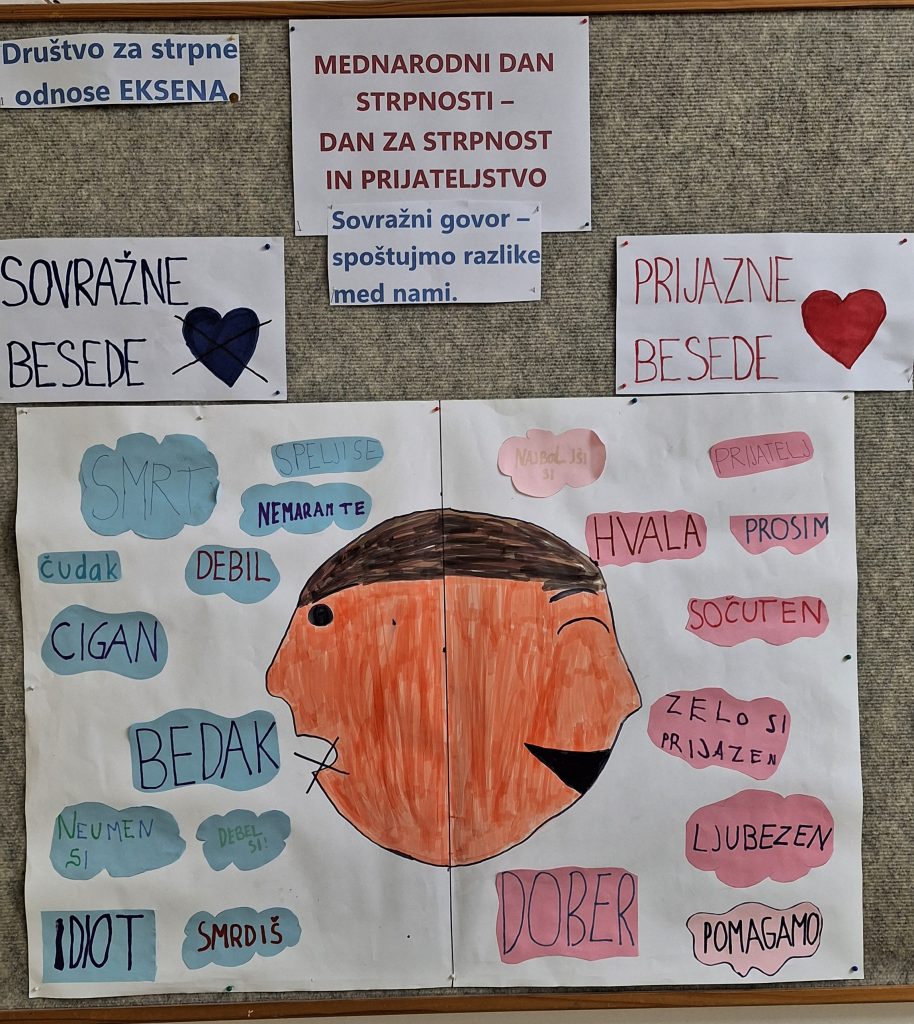 Društvo za strpne
odnose EKSENA
MEDNARODNI DAN
STRPNOSTI –
DAN ZA STRPNOST
IN PRIJATELJSTVO
Sovražni govor –
spoštujmo razlike
med nami.
SOVRAŽNE
BESEDE
PRIJAZNE
BESEDE
SMRT
SPELJI SE
NEMARAM TE
čudak
DEBIL
CIGAN
BEDAK
NEUMEN
SI
DEBEL
SI!
IDIOT
SMRDIŠ
NAJBOLJŠI
SI
PRIJATELJ
HVALA
PROSIM
SOČUTEN
ZELO SI
PRIJAZEN
LJUBEZEN
DOBER
POMAGAMO